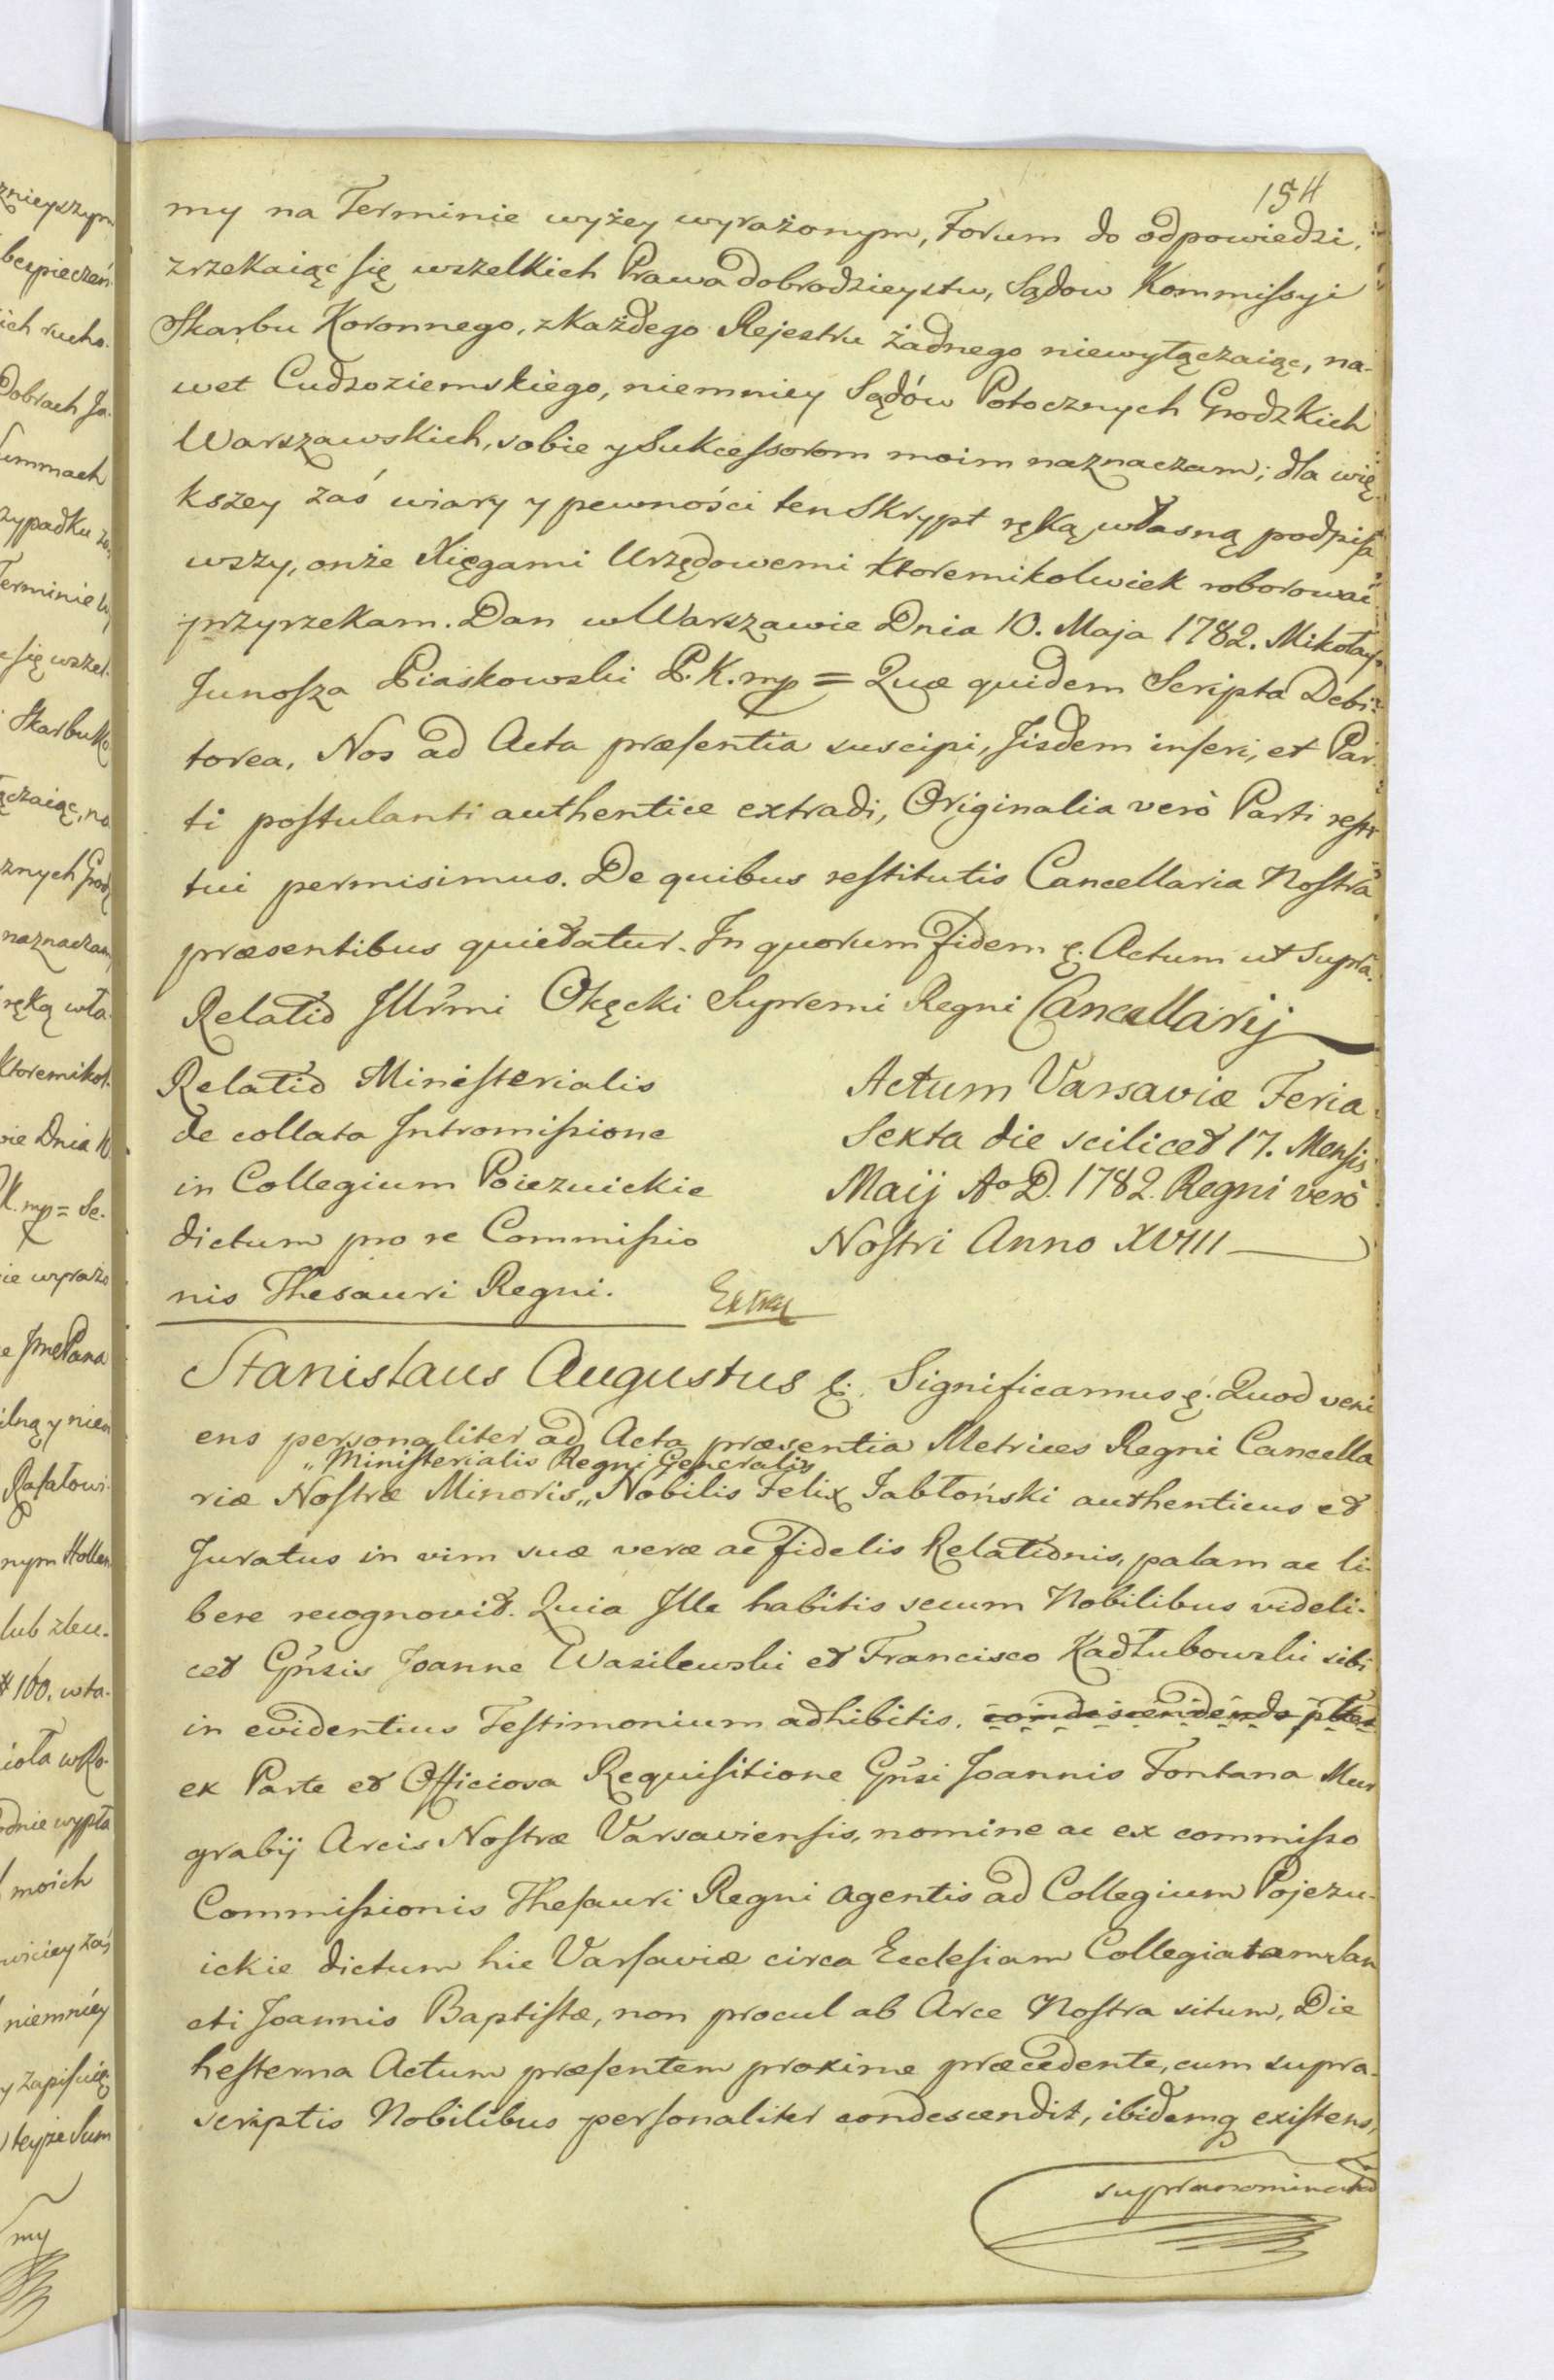 154
my na Terminie wyżey wyrażonym, Forum do odpowiedzi,
zrzekaiąc się wszelkich Prawa dobrodzieystw, Sądow Kommissyi
Skarbu Koronnego, z Każdego Rejestru żadnego niewyłączaiąc, na-
wet Cudzoziemskiego, niemniey Sądów Potocznych Grodzkich
Warszawskich, sobie y Sukcessorom moim naznaczam; dla wię
kszey zaś wiary y pewności ten Skrypt ręką własną podpisa
wszy, onże Xięgami Urzędowemi ktoremikolwiek roborować
przyrzekam. Dan w Warszawie Dnia 10. Maja 1782. Mikołay
Junosza Piaskowski P. K. mp = Quæ quidem Scripta Debi-
torea, Nos ad Acta præsentia suscipi, Jisdem inseri, et Par-
ti postulanti authentice extradi, Originalia verò Parti resti
tui permisimus. De quibus restitutis Cancellaria Nostra
præsentibus quietatur. In quorum Fidem &. Actum ut supra.
Relatio Jllrmi Okęcki Supremi Regni Cancellarij
Relatio Ministerialis
de collata Intromissione
in Collegium Poiezuickie
dictum pro re Commissio
nis Thesauri Regni.
Actum Varsaviæ Feria
Sexta die scilicet 17. Mensis
Maij Ao D. 1782. Regni verò
Nostri Anno XVIII
Extra
Stanislaus Augustus &. Significamus &. Quod veni
ens personaliter ad Acta præsentia Metrices Regni Cancella
„Ministerialis Regni Generalis
riæ Nostræ Minoris „ Nobilis Felix Jabłoński authenticus et
Juratus in vim suæ veræ ac fidelis Relationis, palam ac li-
bere recognovit. Quia Jlle habitis secum Nobilibus videli-
cet Gnsis Joanne Wasilewski et Francisco Kadłubowski sibi
in evidentius Testimonium adhibitis, condescendendo
ex Parte et Officiosa Requisitione Gnsi Joannis Fontana Mur
grabij Arcis Nostræ Varsaviensis, nomine ac ex commisso
Commissionis Thesauri Regni agentis ad Collegium Pojezu-
ickie dictum hic Varsaviæ circa Ecclesiam Collegiatam San
cti Joannis Baptistæ, non procul ab Arce Nostra situm, Die
hesterna Actum præsentem proxime præcedente, cum supra-
scriptis Nobilibus personaliter condescendit, ibidemq existens,
supranominato